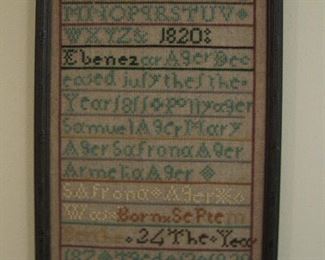 MNOPQRSTUV
WXYZ& 1820
Ebenezar Ager Dec
eased july the
Year Polly ager
Samuel Ager Mary
Ager Safrona Ager
Armelia Ager
SAfrona Ager
Was Born SePtem
24 The Year